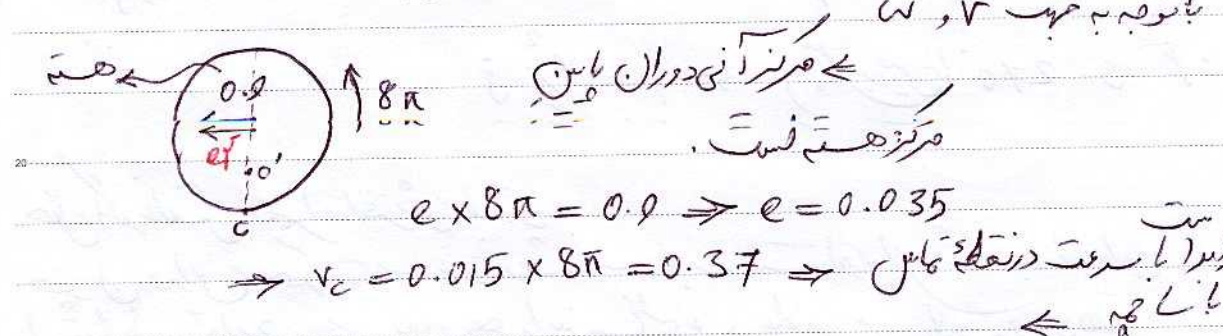 با توجه به جهت V و ω
هسته
0.9
8π
⇐ مرکز آنی دوران پایین
er
مرکز هسته است.
20
o'
c
e × 8π = 0.9 ⇒ e = 0.035
⇒ v_c = 0.015 × 8π = 0.37 ⇒ سرعت در نقطه تماس
با ساچمه ⇐